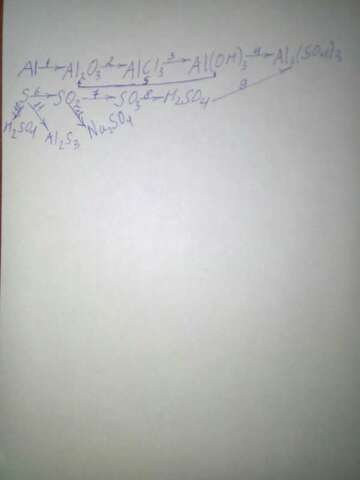 Al 1→ Al₂O₃ 2→ AlCl₃ 3→ Al(OH)₃ 4→ Al₂(SO₄)₃
5
S 6→ SO₂ 7→ SO₃ 8→ H₂SO₄ 9
H₂SO₄ Al₂S₃ Na₂SO₄